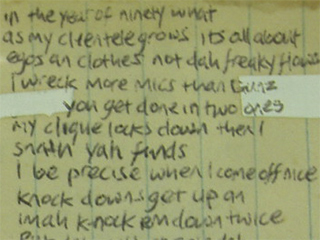 in the year of ninety what
as my clientele grows its all about
egos an clothes not dah freaky flows
I wreck more mics than Gunz
you get done in two ones
my clique locks down then I
snath yah funds
I be precise when I come off nice
knock downs get up an
imah k-nock em down twice